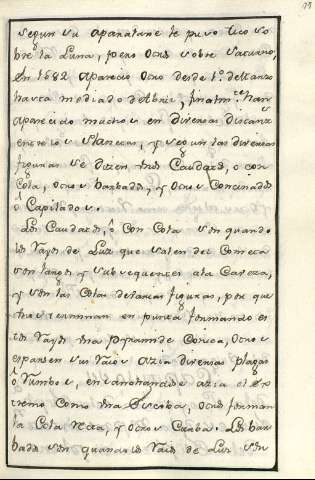 segun su aparatane se puso uco so
bre la Luna, pero otros sobre Saturno,
en 1682 aparecio otro desde 1.º de Marzo
hasta mediado de Abril, finalm.te han
aparecido muchos en diversas distanz
entre los Planetas, y segun las diversas
figuras se dizen unos Caudatos, o con
Cola, otros barbados, y otros Concinados
ô Capilados.
Los Caudatos, ô con Cola son quando
los rayos de Luz que salen del Cometa
son largos y subsequentes ala Caveza,
y son las Colas de varias figuras, por que
unos terminan en punta formando
los rayos una Pyramide Conica, otros
esparsen sus raios azia diversas plagas
ô rumbos, ensanchandose azia el ex
tremo Como una Escoba, otros forman
la Cola recta, y otros Curba. Los bar
bados son quando los raios de Luz son